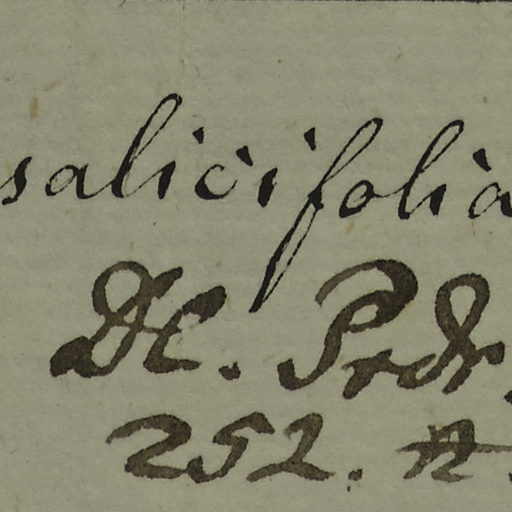 salicifolia
DC. Prdr.
252. n.